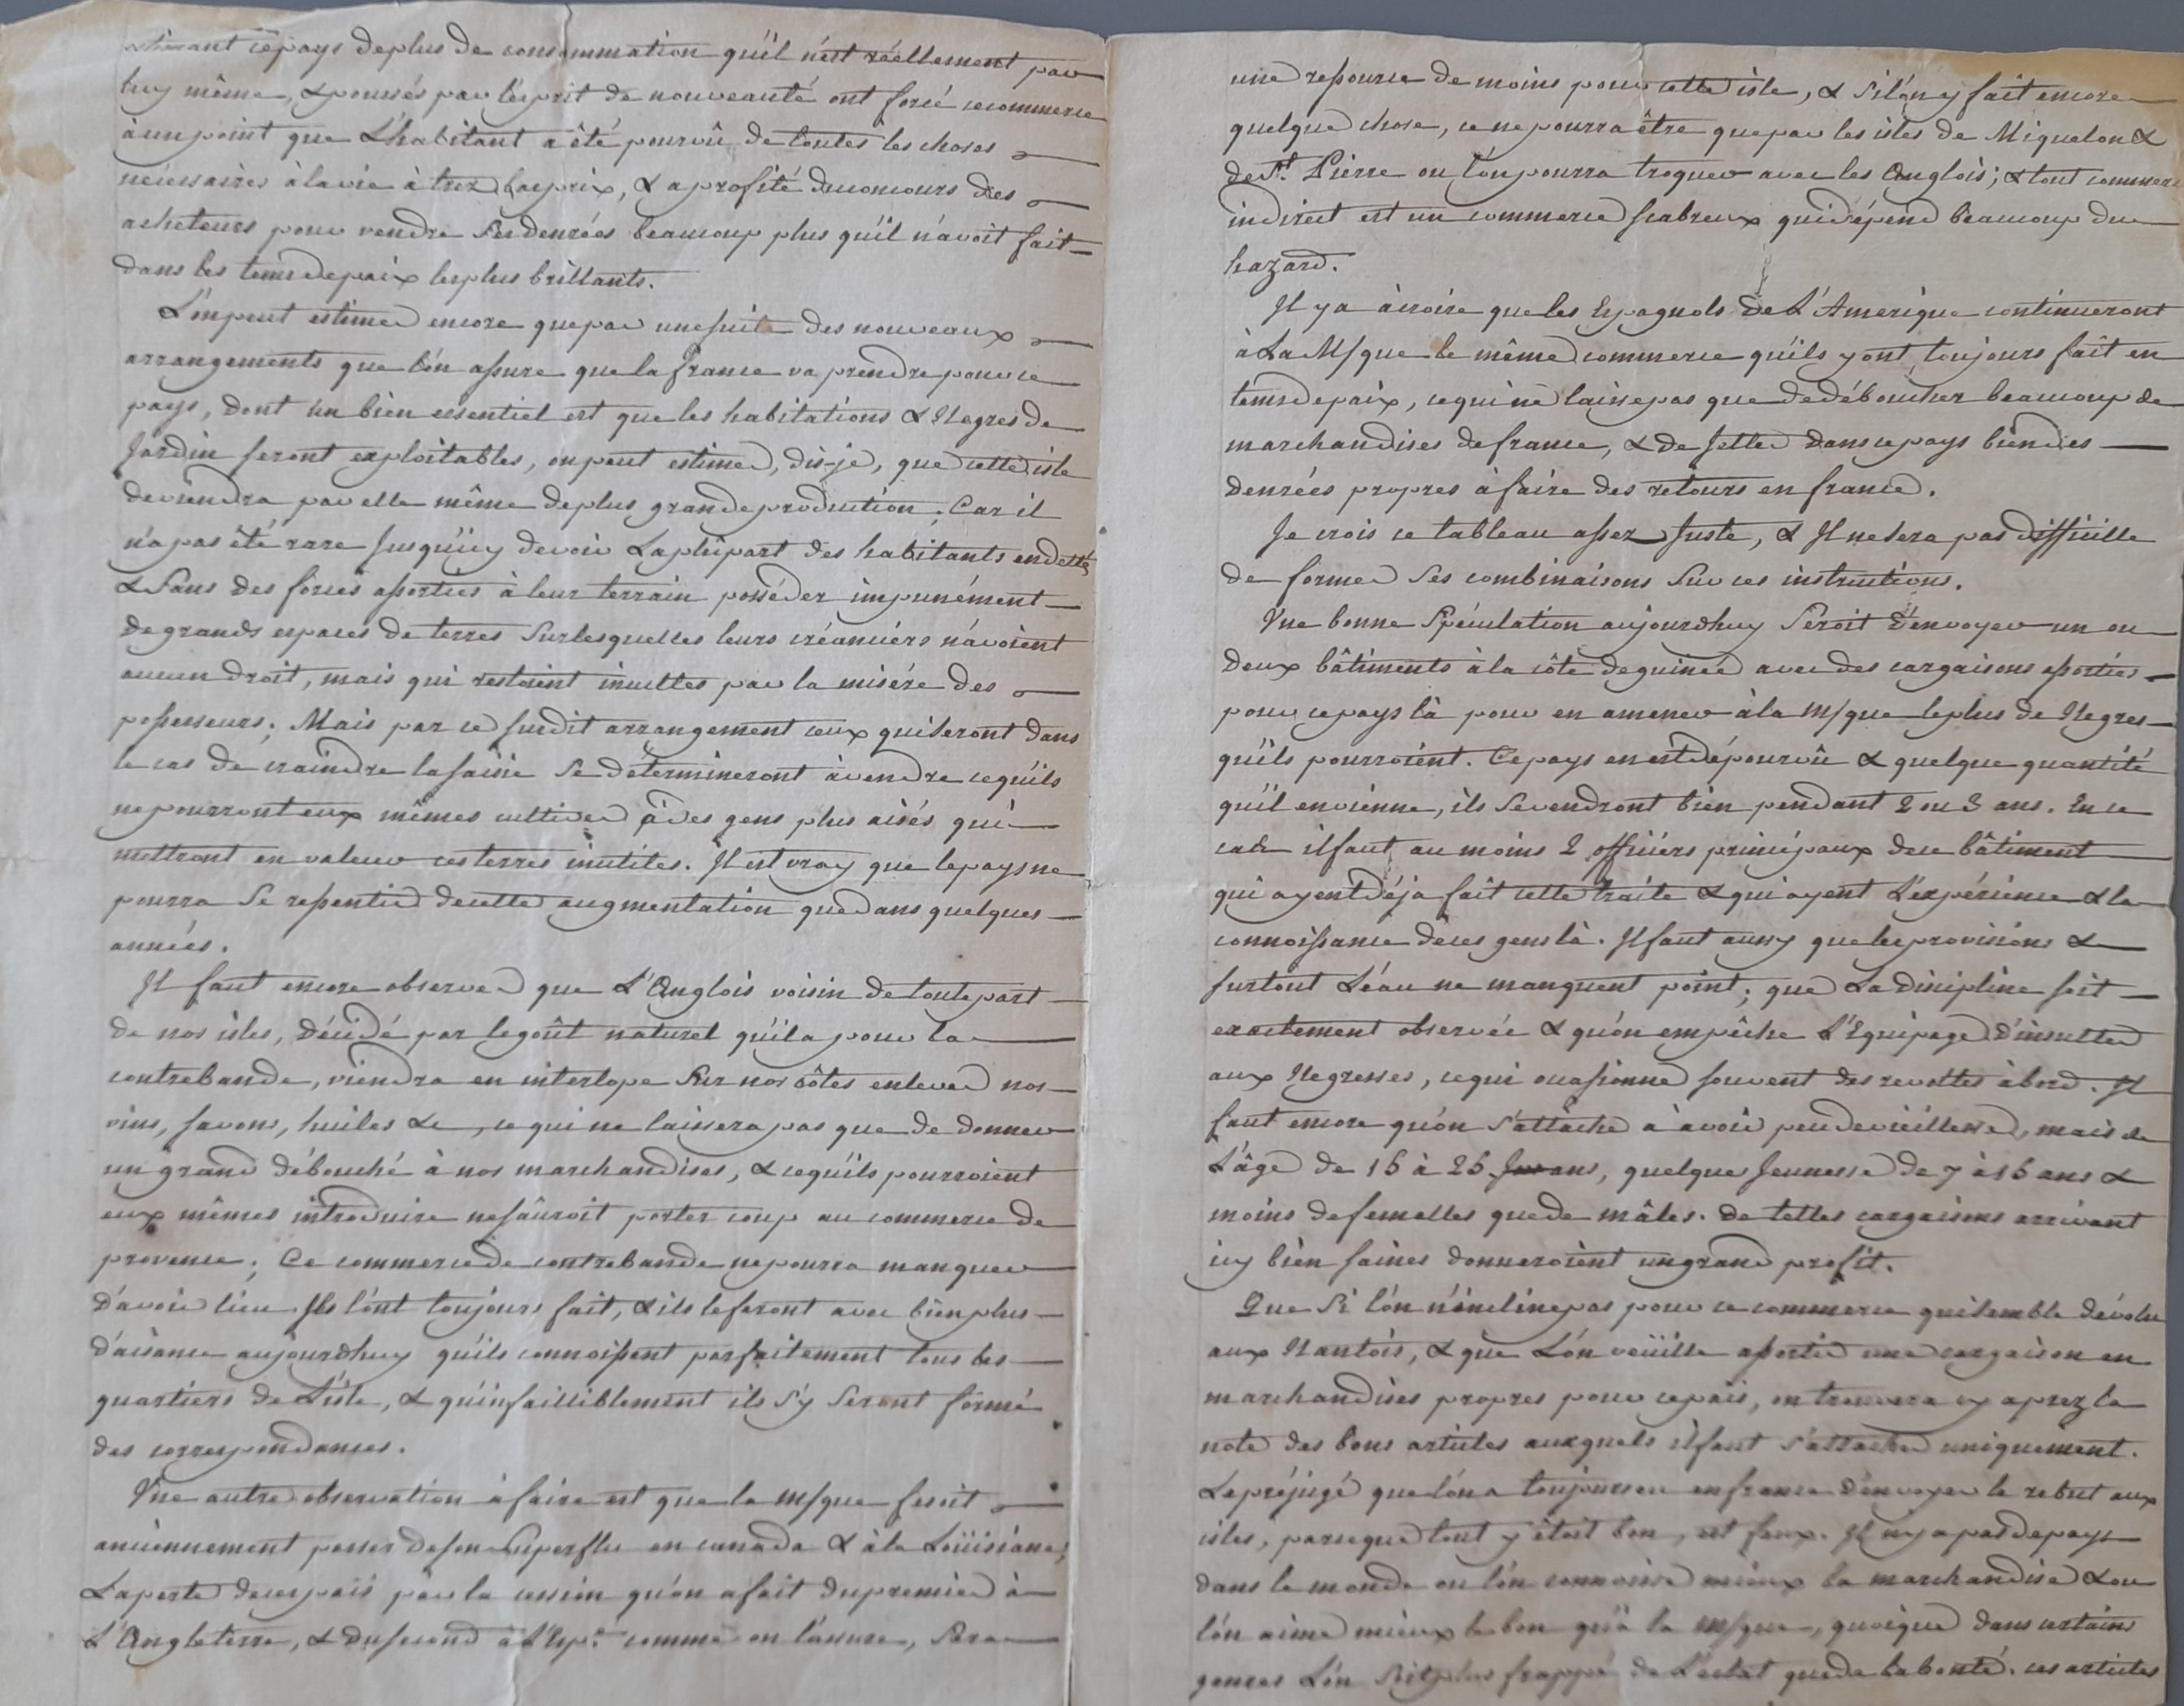 estimant ce pays de plus de consommation qu'il n'est réellement par
luy même, & poussés par l'esprit de nouveauté ont forcé ce commerce
à un point que L'habitant a été pourvû de toutes les choses
nécessaires à la vie à trez bas prix, & a profité du concours des
acheteurs pour vendre ses denrées beaucoup plus qu'il n'avoit fait
dans les tems de paix les plus brillants.
L'on peut estimer encore que par une suite des nouveaux
arrangements que l'on assure que la france va prendre pour ce
pays, dont un bien essentiel est que les habitations & Negres de
Jardin seront exploitables, on peut estimer, dis-je, que cette isle
deviendra par elle même de plus grande production; Car il
n'a pas été rare jusqu'icy de voir La plûpart des habitants endettés
& sans des forces assorties à leur terrain posséder impunément
de grands espaces de terres sur lesquelles leurs créanciers n'avoient
aucun droit, mais qui restoient incultes par la misére des
possesseurs; Mais par ce susdit arrangement ceux qui seront dans
le cas de craindre la saisie se détermineront à vendre ce qu'ils
ne pourront eux mêmes cultiver à des gens plus aisés qui
mettront en valeur ces terres inutiles. Il est vray que le pays ne
pourra se ressentir de cette augmentation que dans quelques
années.
Il faut encore observer que L'Anglois voisin de toute part
de nos isles, décidé par le goût naturel qu'il a pour la
contrebande, viendra en interlope sur nos côtes enlever nos
vins, savons, huiles &c, ce qui ne laissera pas que de donner
un grand débouché à nos marchandises, & ce qu'ils pourroient
eux mêmes introduire ne sauroit porter coup au commerce de
provence; Ce commerce de contrebande ne pourra manquer
d'avoir lieu. Ils l'ont toujours fait, & ils le feront avec bien plus
d'aisance aujourdhuy qu'ils connoissent parfaitement tous les
quartiers de L'isle, & qu'infailliblement ils s'y seront formé
des correspondances.
Une autre observation à faire est que la M/que fesoit
anciennement passer de son superflu en canada & à la Loüisiane;
La perte de ces païs par la cession qu'on a fait du premier à
L'Angleterre, & du second à l'Esp.e comme on l'assure, sera
une ressource de moins pour cette isle, & s'il s'y fait encore
quelque chose, ce ne pourra être que par les isles de Miquelon &
de St. Pierre ou l'on pourra troquer avec les Anglois; & tout commerce
indirect est un commerce scabreux qui dépend beaucoup du
hazard.
Il y a à croire que les Espagnols de L'Amerique continueront
à La M/que le même commerce qu'ils y ont toujours fait en
tems de paix, ce qui ne laisse pas que de déboucher beaucoup de
marchandises de france, & de jetter dans ce pays bien des
denrées propres à faire des retours en france.
Je crois ce tableau assez juste, & Il ne sera pas difficille
de former ses combinaisons sur ces instructions.
Une bonne Spéculation aujourdhuy seroit d'envoyer un ou
deux bâtiments à la côte de guinée avec des cargaisons assorties
pour ce pays là pour en amener à la M/que le plus de Negres
qu'ils pourroient. Ce pays en est dépourvû & quelque quantité
qu'il en vienne, ils se vendront bien pendant 2 ou 3 ans. En ce
cas il faut au moins 2 officiers principaux de ce bâtiment
qui ayent déja fait cette traite & qui ayent L'expérience & la
connoissance de ces gens là. Il faut aussy que les provisions &
surtout L'eau ne manquent point; que La discipline soit
exactement observée & qu'on empêche L'Equipage d'insulter
aux Negresses, ce qui occasionne souvent des revoltes à bord. Il
faut encore qu'on s'attâche à avoir peu de vieillesse, mais de
L'âge de 16 à 26 ans, quelque Jeunesse de 7 à 16 ans &
moins de femelles que de mâles. de telles cargaisons arrivant
icy bien saines donneroient un grand profit.
Que si l'on n'incline pas pour ce commerce qui semble dévolu
aux Nantois, & que L'on veüille assortir une cargaison en
marchandises propres pour ce païs, on trouvera cy aprez la
note des bons articles auxquels il faut s'attacher uniquement.
Le préjugé que l'on a toujours eu en france d'envoyer le rebut aux
isles, parceque tout y étoit bon, est faux. Il n'y a pas de pays
dans le monde ou l'on connoisse mieux la marchandise & ou
l'on aime mieux le bon qu'à la M/que, quoique dans certains
genres L'on soit plus frappé de L'éclat que de la bonté. ces articles